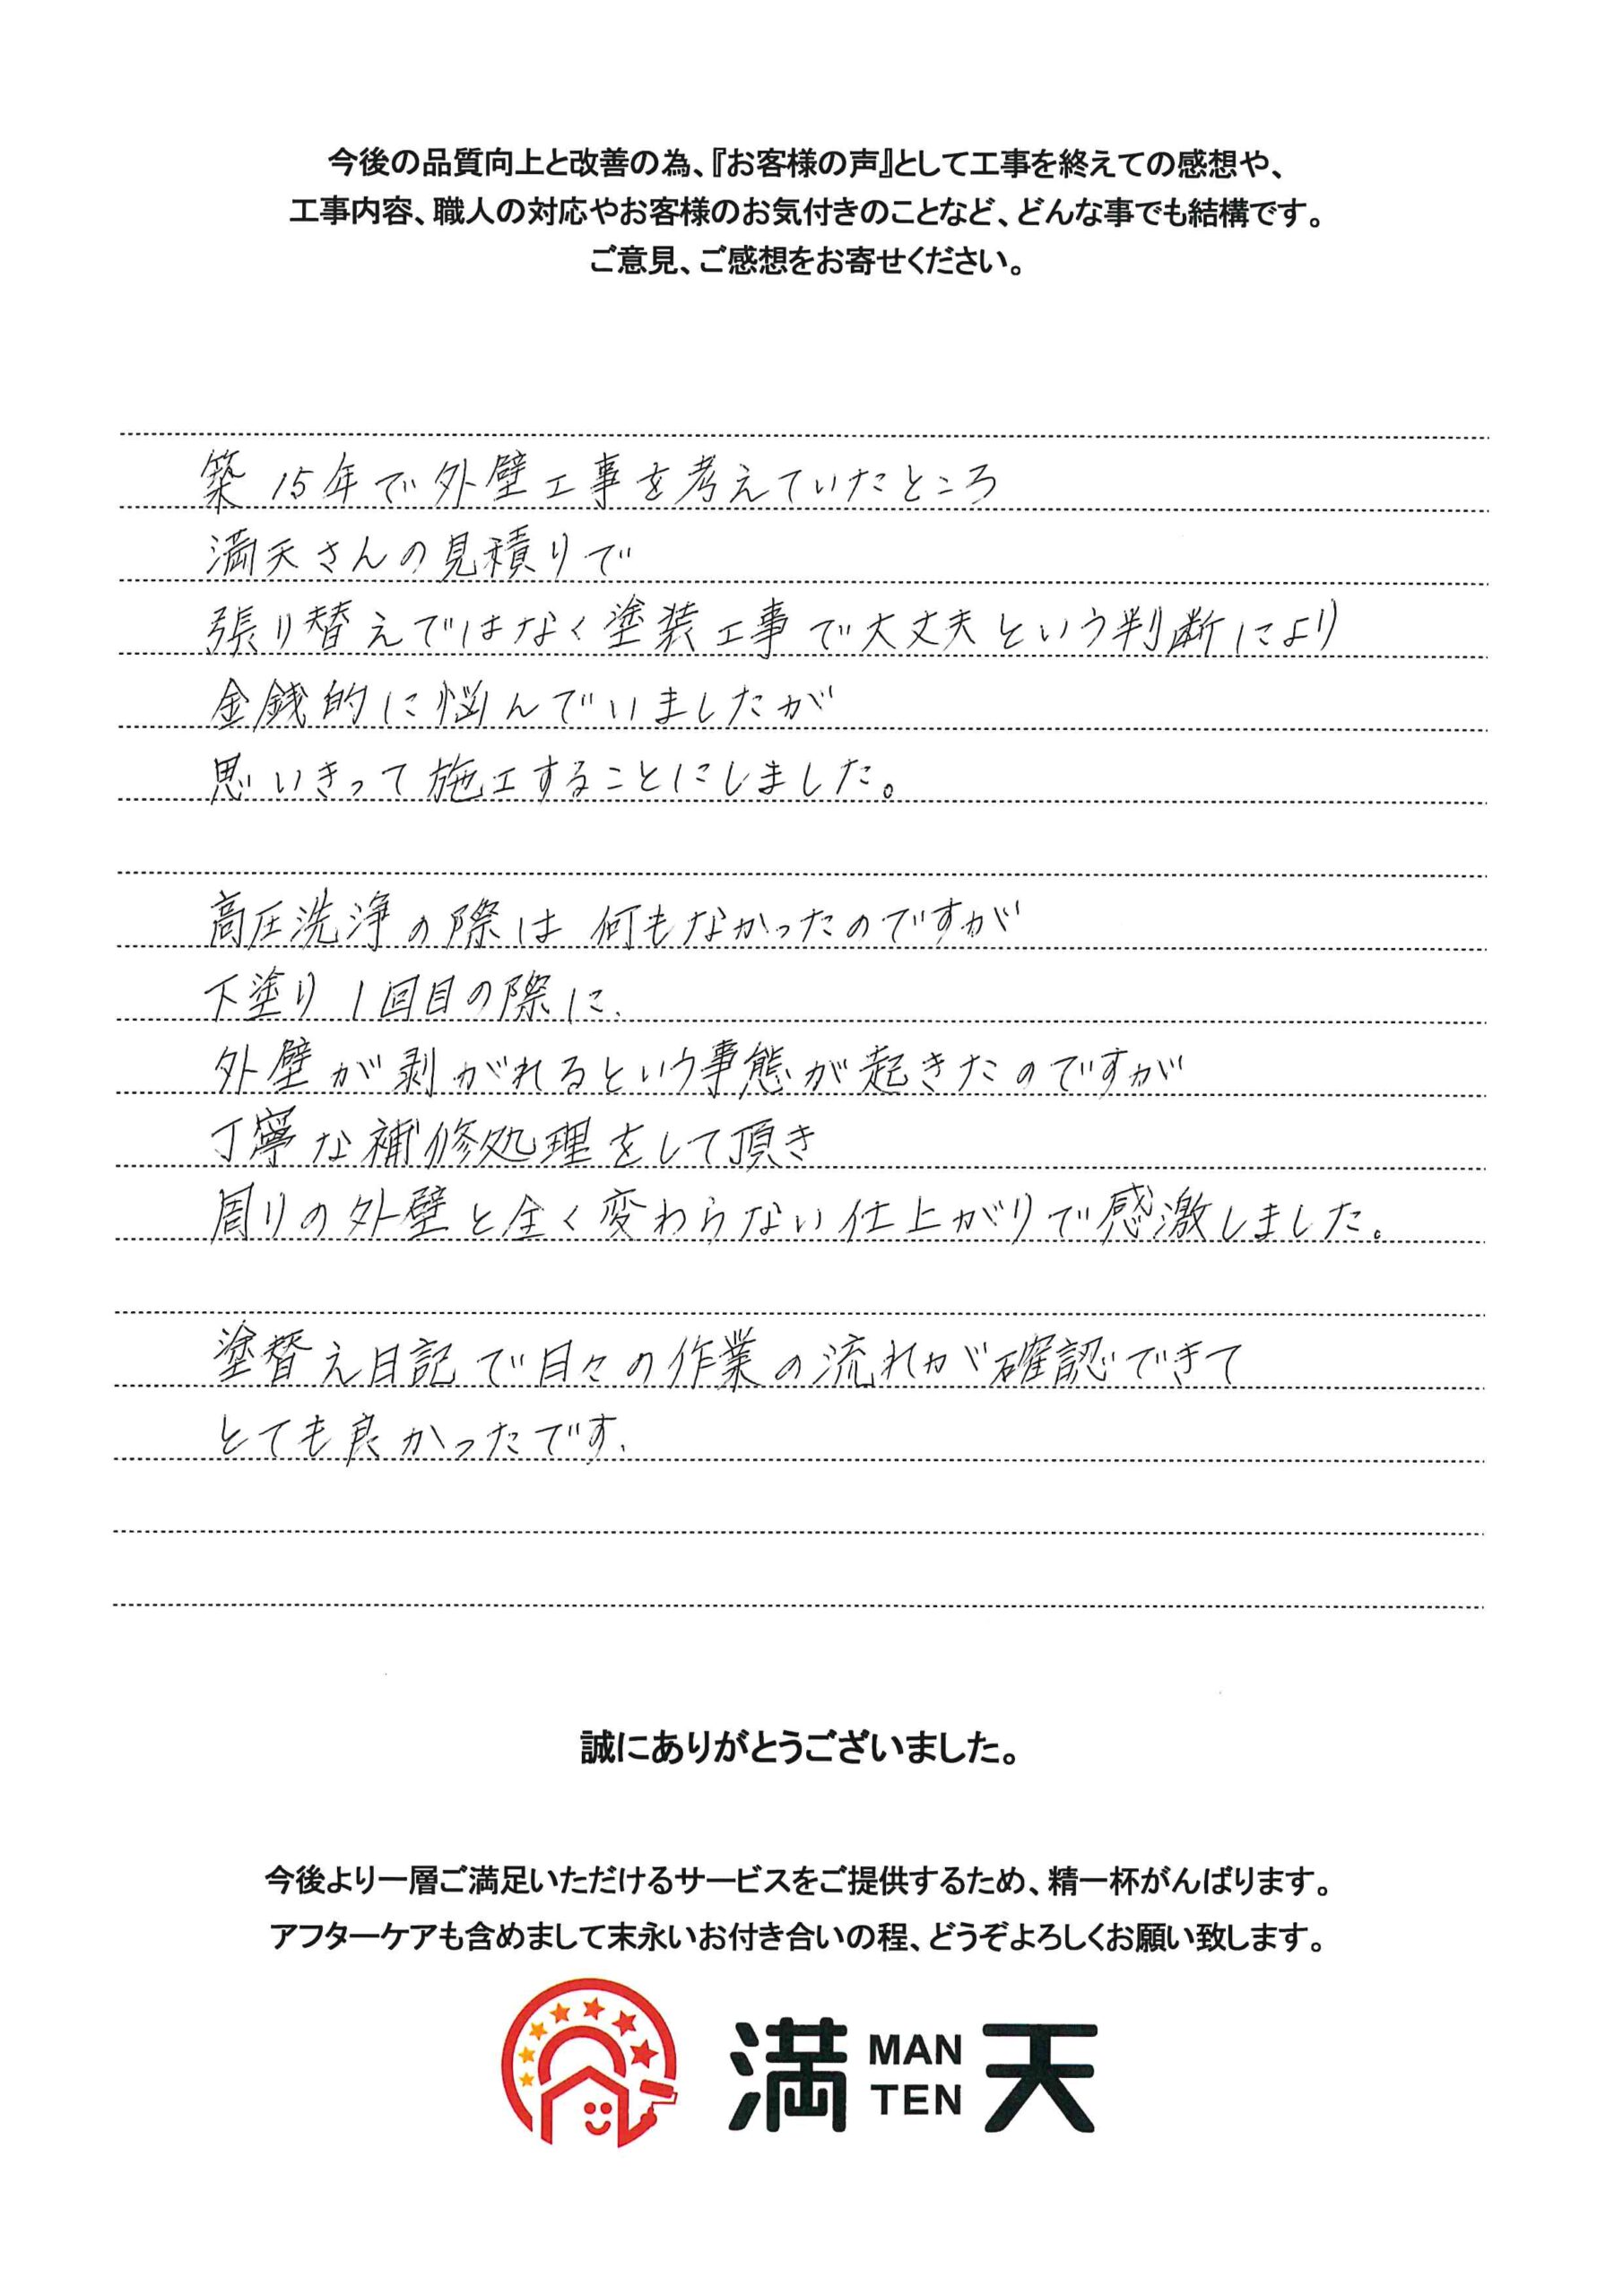 今後の品質向上と改善の為、『お客様の声』として工事を終えての感想や、
工事内容、職人の対応やお客様のお気付きのことなど、どんな事でも結構です。
ご意見、ご感想をお寄せください。
築15年で外壁工事を考えていたところ
満天さんの見積りで
張り替えではなく塗装工事で大丈夫という判断により
金銭的に悩んでいましたが
思いきって施工することにしました。
高圧洗浄の際は何もなかったのですが
下塗り1回目の際に、
外壁が剥がれるという事態が起きたのですが
丁寧な補修処理をして頂き
周りの外壁と全く変わらない仕上がりで感激しました。
塗替え日記で日々の作業の流れが確認できて
とても良かったです、
誠にありがとうございました。
今後より一層ご満足いただけるサービスをご提供するため、精一杯がんばります。
アフターケアも含めまして末永いお付き合いの程、どうぞよろしくお願い致します。
満 MAN TEN 天